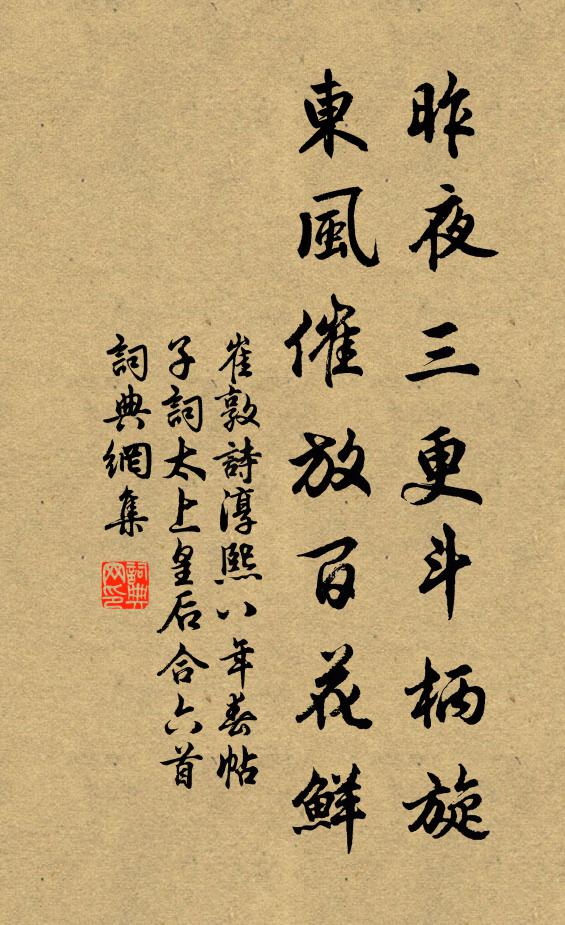 昨夜三更斗柄旋
東風催放百花鮮
崔敦詩淳熙八年春帖
子詞太上皇后合六首
詞典網集
詞典網印